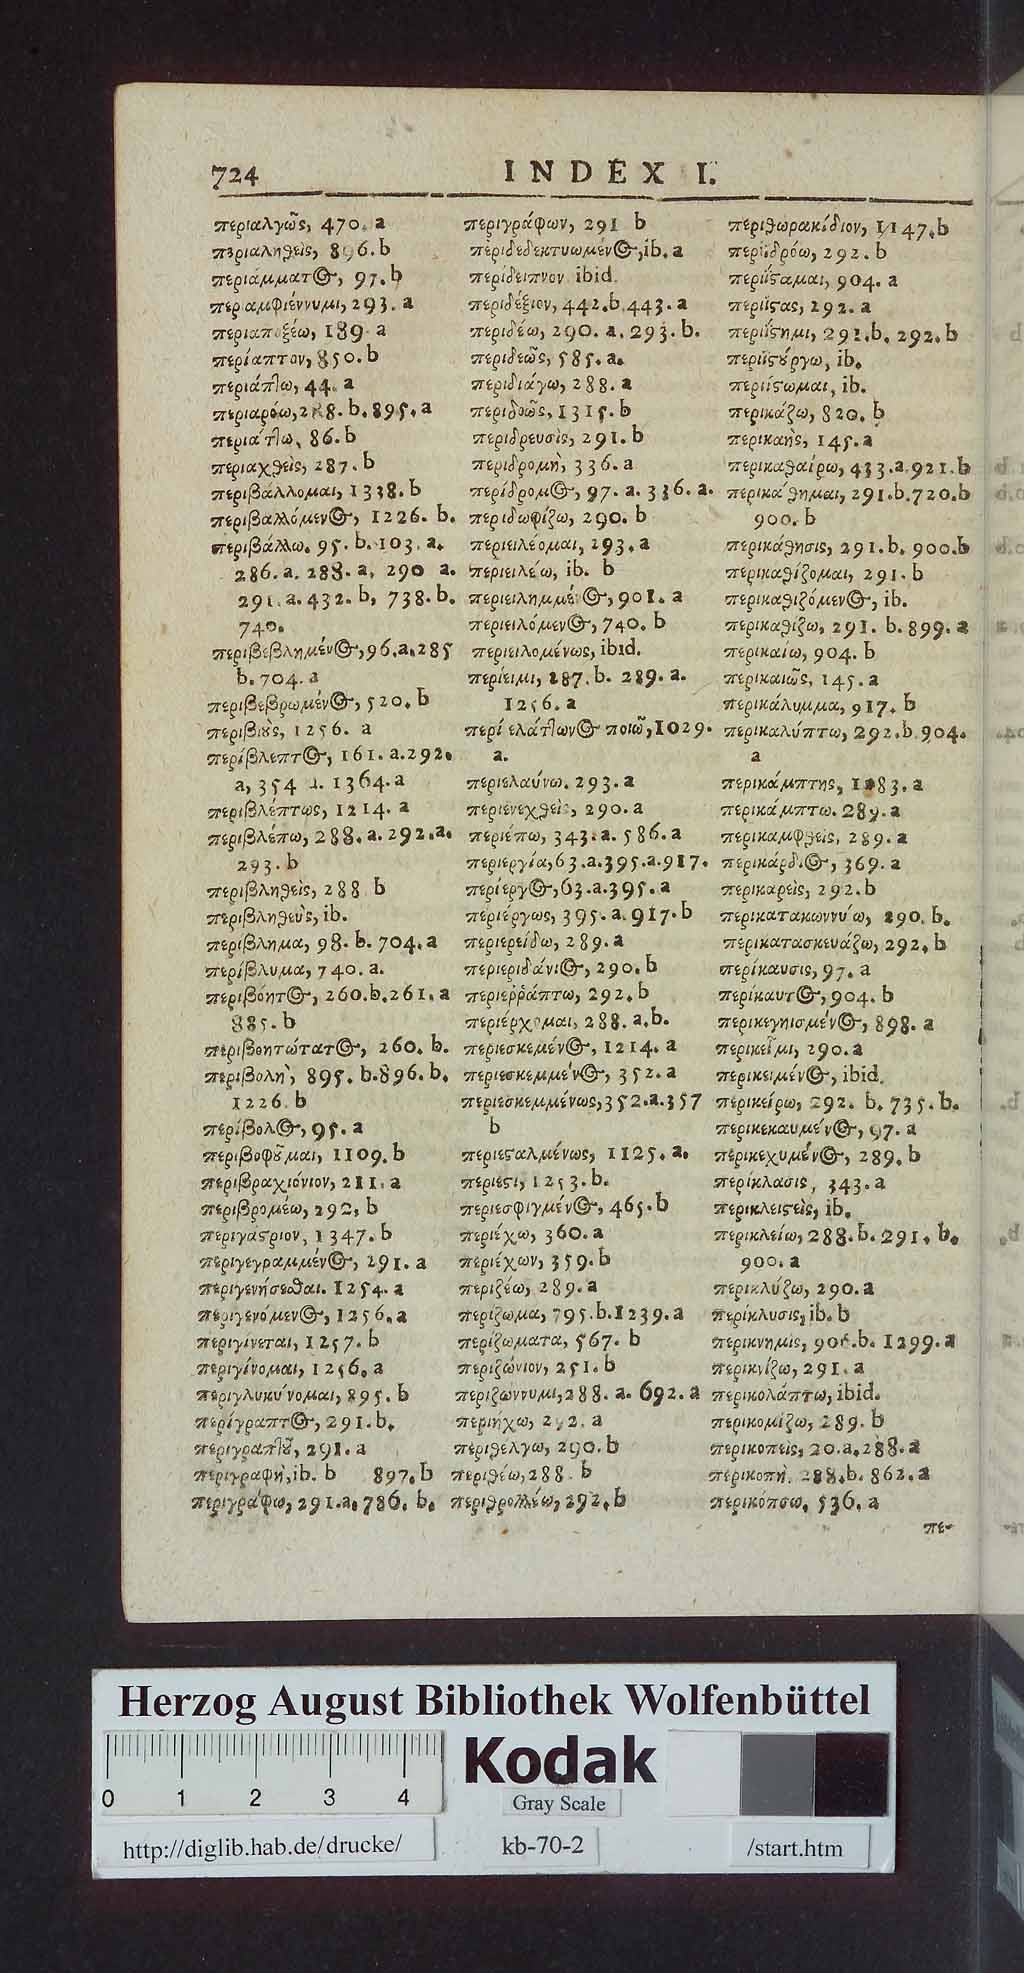 724 INDEX I.
περιαλγῶς, 470. a
περιαληθεὶς, 896. b
περιάμματ⊕, 97. b
περιαμφιέννυμι, 293. a
περιαποξέω, 189. a
περίαπτον, 850. b
περιάπτω, 44. a
περιαρόω, 288. b. 895. a
περιάττω, 86. b
περιαχθεὶς, 287. b
περιβάλλομαι, 1338. b
περιβαλλόμεν⊕, 1226. b.
περιβάλλω. 95. b. 103. a.
286. a. 288. a. 290 a.
291. a. 432. b, 738. b.
740.
περιβεβλημέν⊕, 96. a. 285
b. 704. a
περιβεβρωμέν⊕, 520. b
περιβιοὺς, 1256. a
περίβλεπτ⊕, 161. a. 292.
a, 354 a. 1364. a
περιβλέπτως, 1214. a
περιβλέπω, 288. a. 292. a.
293. b
περιβληθεὶς, 288 b
περιβληθεὺς, ib.
περιβλημα, 98. b. 704. a
περίβλυμα, 740. a.
περιβόητ⊕, 260. b. 261. a
885. b
περιβοητώτατ⊕, 260. b.
περιβολὴ, 895. b. 896. b.
1226. b
περίβολ⊕, 95. a
περιβοφοῦμαι, 1109. b
περιβραχιόνιον, 211. a
περιβρομέω, 292, b
περιγάστριον, 1347. b
περιγεγραμμέν⊕, 291. a
περιγενήσεσθαι. 1254. a
περιγενόμεν⊕, 1256. a
περιγίνεται, 1257. b
περιγίνομαι, 1256. a
περιγλυκύνομαι, 895. b
περίγραπτ⊕, 291. b.
περιγραπτοῦ, 291. a
περιγραφὴ, ib. b 897. b
περιγράφω, 291. a. 786. b.
περιγράφων, 291 b
περιδεδεκτυωμέν⊕, ib. a
περίδειπνον ibid.
περιδέξιον, 442. b. 443. a
περιδέω, 290. a. 293. b.
περιδεῶς, 585. a.
περιδιάγω, 288. a
περιδοῶς, 1315. b
περιδρευσὶς, 291. b
περιδρομὴ, 336. a
περίδρομ⊕, 97. a. 336. a.
περιδωφίζω, 290. b
περιειλέομαι, 293. a
περιειλέω, ib. b
περιειλημμέν⊕, 901. a
περιειλόμεν⊕, 740. b
περιειλομένως, ibid.
περίειμι, 287. b. 289. a.
1256. a
περὶ ἐλάττων⊕ ποιῶ, 1029.
a.
περιελαύνω. 293. a
περιενεχθεὶς, 290. a
περιέπω, 343. a. 586. a
περιεργία, 63. a. 395. a. 917.
περίεργ⊕, 63. a. 395. a
περιέργως, 395. a. 917. b
περιερείδω, 289. a
περιεριδάνι⊕, 290. b
περιεῤῥάπτω, 292. b
περιέρχομαι, 288. a. b.
περιεσκεμέν⊕, 1214. a
περιεσκεμμέν⊕, 352. a
περιεσκεμμένως, 352. a. 357
b
περιεσταλμένως, 1125. a.
περίεστι, 1253. b.
περιεσφιγμέν⊕, 465. b
περιέχω, 360. a
περιέχων, 359. b
περιζέω, 289. a
περίζωμα, 795. b. 1239. a
περιζώματα, 567. b
περιζώνιον, 251. b
περιζωννυμι, 288. a. 692. a
περιήχω, 292. a
περιθέλγω, 290. b
περιθέω, 288. b
περιθρολλέω, 292. b
περιθωρακίδιον, 1147. b
περιιδρόω, 292. b
περιίσταμαι, 904. a
περιίστας, 292. a
περιίστημι, 291. b. 292. b
περιιστούργω, ib.
περιίστωμαι, ib.
περικάζω, 820. b
περικαὴς, 145. a
περικαθαίρω, 433. a. 921. b
περικάθημαι, 291. b. 720. b
900. b
περικάθησις, 291. b. 900. b
περικαθίζομαι, 291. b
περικαθιζόμεν⊕, ib.
περικαθίζω, 291. b. 899. a
περικαίω, 904. b
περικαιῶς, 145. a
περικάλυμμα, 917. b
περικαλύπτω, 292. b. 904.
a
περικάμπτης, 1283. a
περικάμπτω. 289. a
περικαμφθεὶς, 289. a
περικάρδι⊕, 369. a
περικαρεὶς, 292. b
περικατακωννύω, 290. b.
περικατασκευάζω, 292. b
περίκαυσις, 97. a
περίκαυτ⊕, 904. b
περικεγηισμέν⊕, 898. a
περικεῖμι, 290. a
περικειμέν⊕, ibid.
περικείρω, 292. b. 735. b.
περικεκαυμέν⊕, 97. a
περικεχυμέν⊕, 289. b
περίκλασις, 343. a
περικλειστεὶς, ib.
περικλείω, 288. b. 291. b.
900. a
περικλύζω, 290. a
περίκλυσις, ib. b
περικνημὶς, 906. b. 1299. a
περικνίζω, 291. a
περικολάπτω, ibid.
περικομίζω, 289. b
περικοπεὶς, 20. a. 288. a
περικοπὴ. 288. b. 862. a
περικόπσω, 536. a
πε-
Herzog August Bibliothek Wolfenbüttel
0 1 2 3 4
Kodak
Gray Scale
http://diglib.hab.de/drucke/ kb-70-2 /start.htm